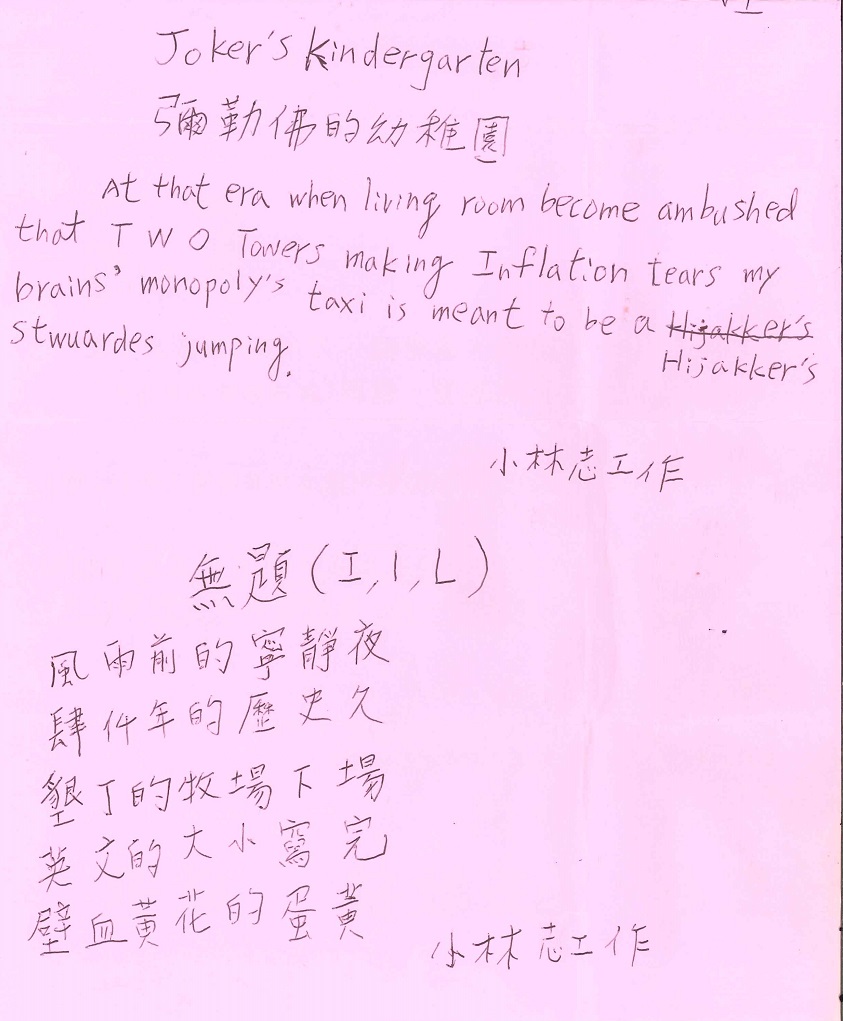 Joker's Kindergarten
彌勒佛的幼稚園
At that era when living room become ambushed
that TWO Towers making Inflation tears my
brains' monopoly's taxi is meant to be a Hijakker's
Hijakker's
stwuardes jumping.
小林志工作
無題(I,l,L)
風雨前的寧靜夜
肆仟年的歷史久
墾丁的牧場下場
英文的大小寫完
壁血黃花的蛋黃
小林志工作